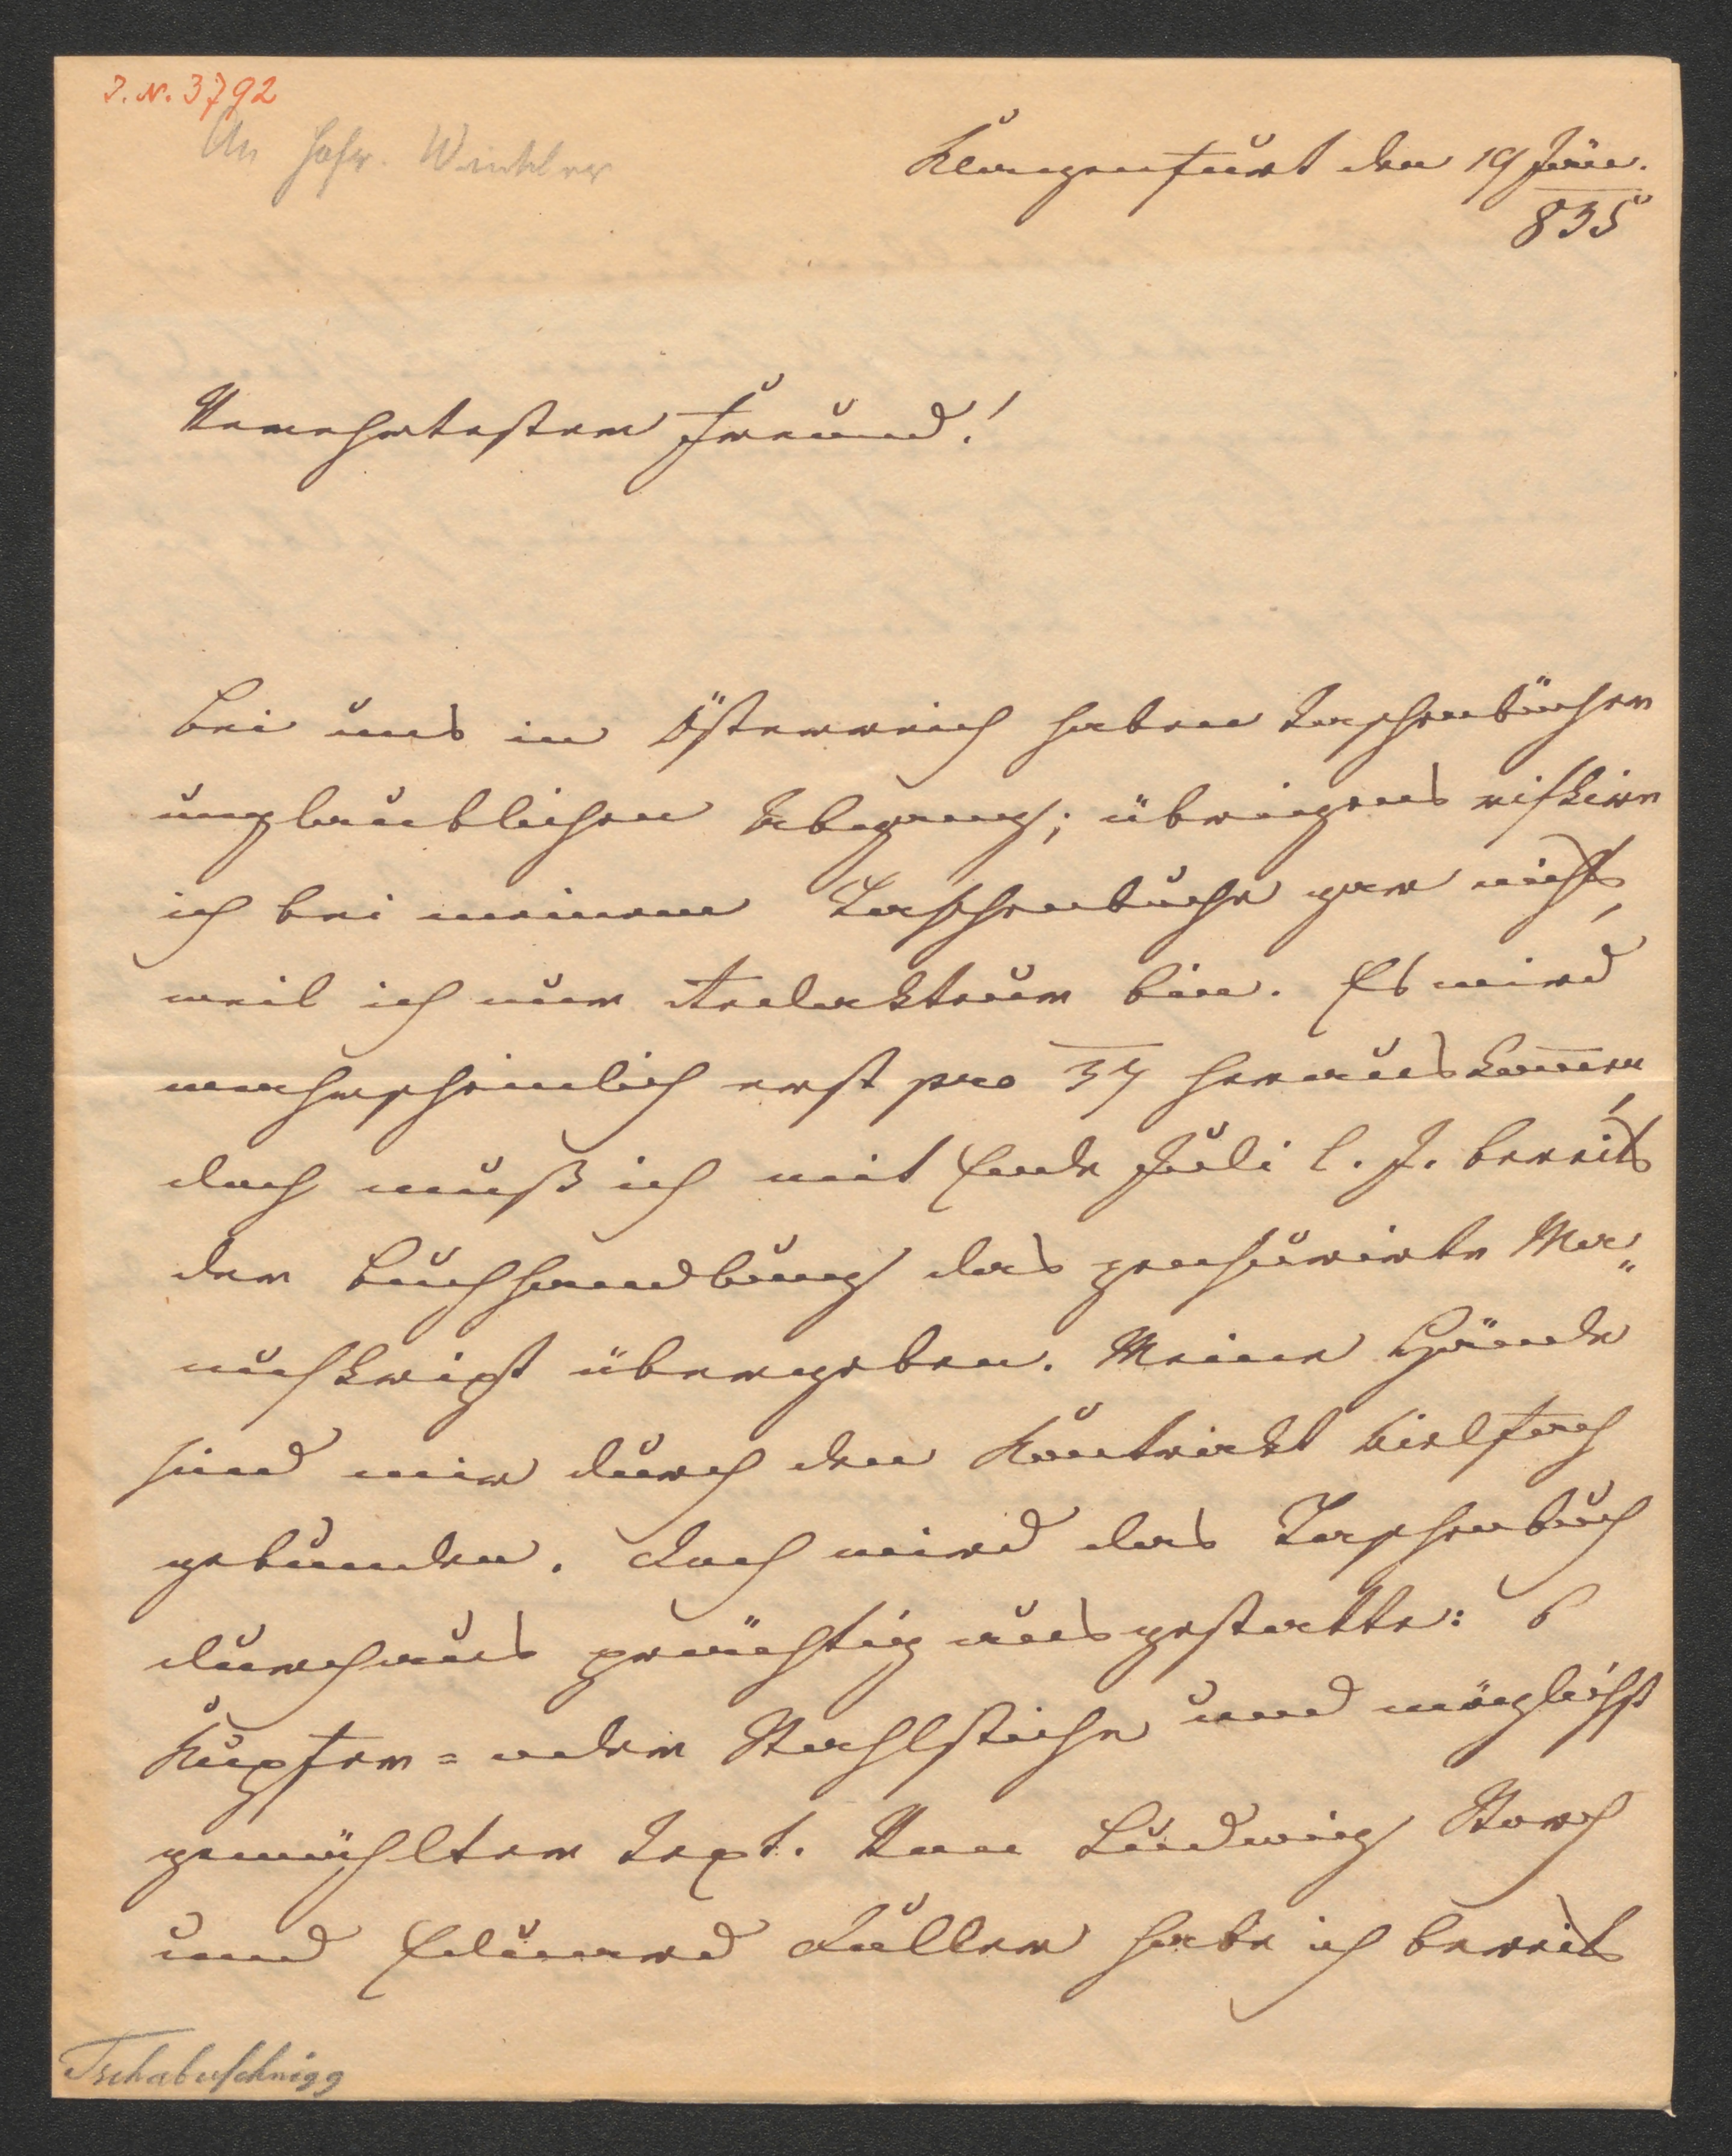 I. N. 3792
An Hofr. Winkler
Klagenfurt den 19 Jän.
835
Verehrtester Freund!
Bei uns in Österreich haben Taschenbücher
unglaublichen Abgang; übrigens riskire
ich bei meinem Taschenbuche gar nichts,
weil ich nur Redakteur bin. Es wird
wahrscheinlich erst pro 37 herauskom̅en,
doch muß ich mit Ende Juli l. J. bereits
der Buchhandlung das zensurirte Ma„
nuskript übergeben. Meine Hände
sind mir durch den Kontrakt vielfach
gebunden. Doch wird das Taschenbuch
durchaus prächtig ausgestattet: 6
Kupfer= oder Stahlstiche und möglichst
gewählter Text. Von Ludwig Storch
und Eduard Duller habe ich bereits
Tschabuschnigg